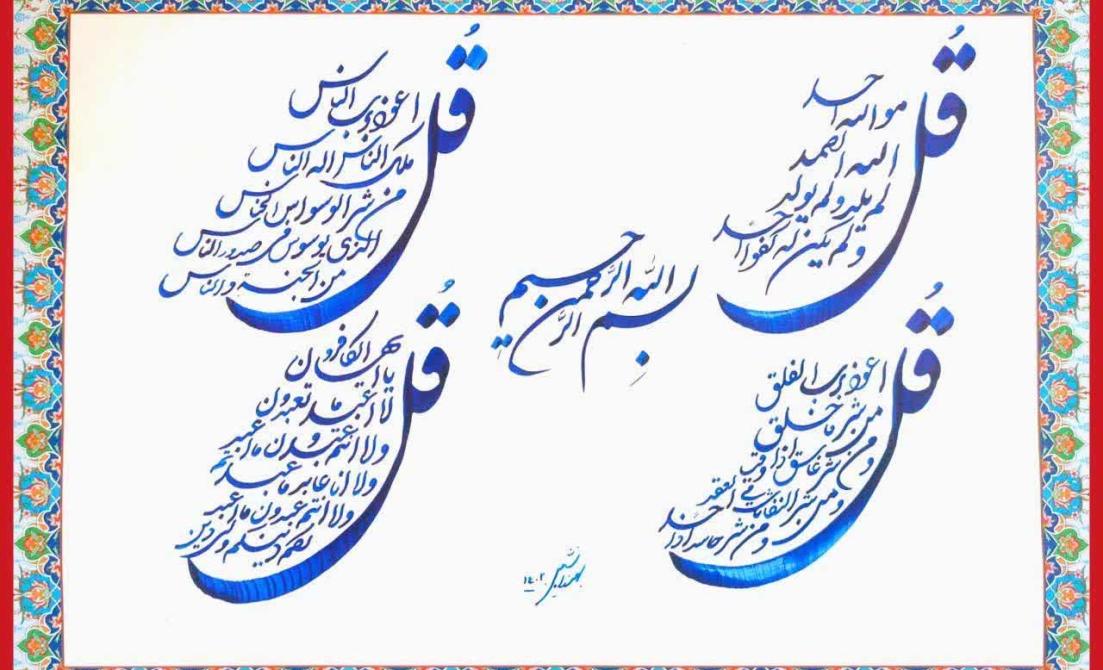 بسم الله الرَّحمن الرَّحیم
قُل
هو الله احد
الله الصمد
لم یلد و لم یولد
و لم یکن له کفوا احد
قُل
اعوذ برب الناس
ملک الناس اله الناس
من شر الوسواس الخناس
الذی یوسوس فی صدور الناس
من الجنة والناس
قُل
اعوذ برب الفلق
من شر ما خلق
و من شر غاسق اذا وقب
و من شر النفاثات فی العقد
و من شر حاسد اذا حسد
قُل
یا ایها الکافرون
لا اعبد ما تعبدون
ولا انتم عبدون ما اعبد
ولا انا عابد ما عبدتم
ولا انتم عبدون ما اعبد
لکم دینکم ولی دین
۱۴۰۲